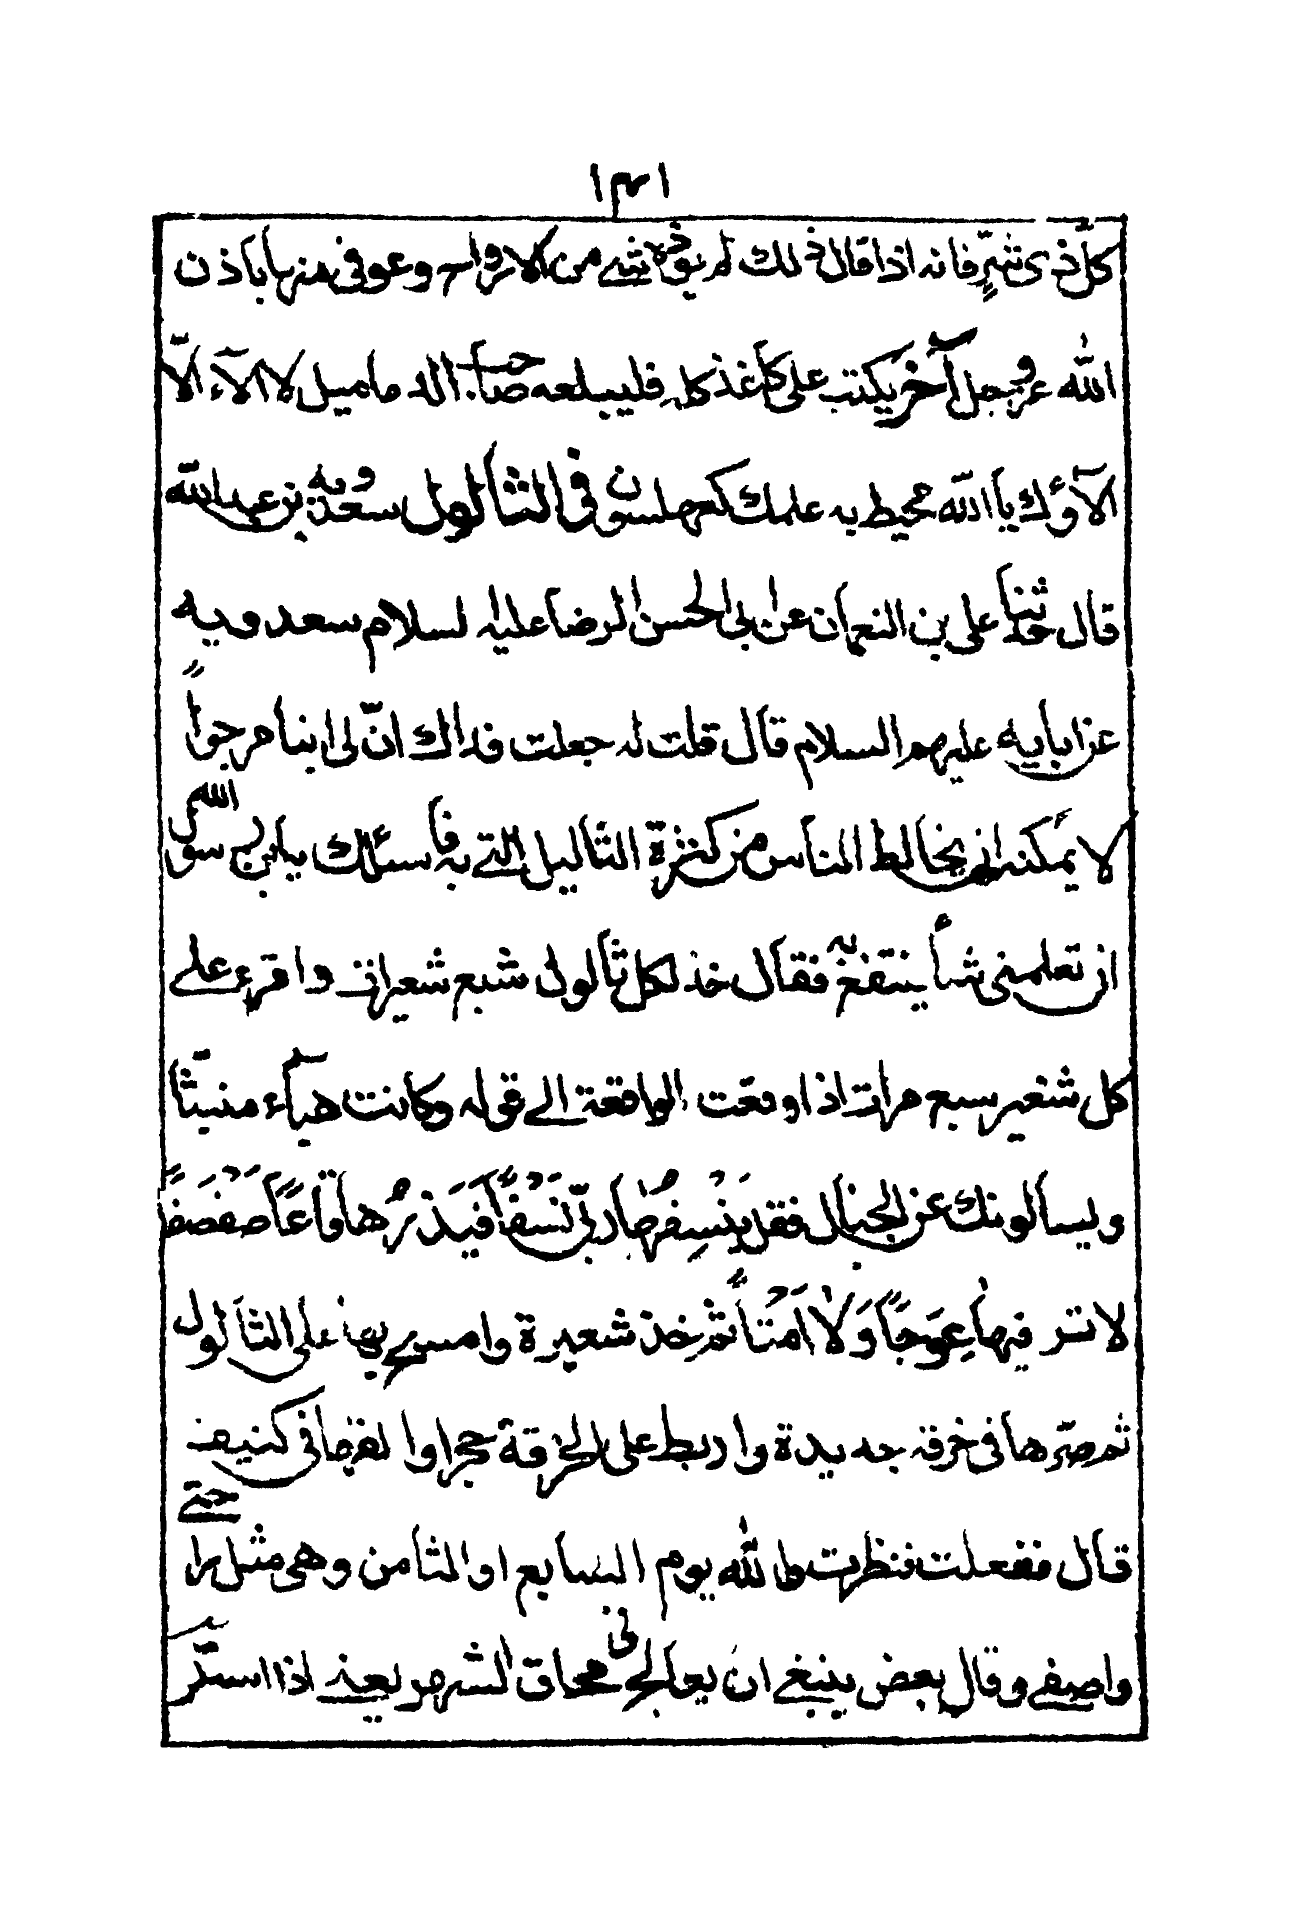 ١٣١
كلّ ذى شرٍّ فانه اذا قال ذلك لم يؤذه شئ من الارواح وعوفى منها باذن
الله عز و جل آخر يكتب على كاغذ كله فليبلعه صاحب الد ماميل لا الآء الّا
الآؤك يا الله محيط به علمك كعهلسون فى الثالول سعدويه بن عبدالله
قال حدثنا على بن النعمان عن ابى الحسن الرضا عليه السلام سعد ويه
عن ابايه عليهم السلام قال قلت له جعلت فداك انّ لى ابنا مرجواً
لا يمكنه انى يخالط الناس من كثرة الثاليل التى به فاسئلك يا بن رسول الله
ان تعلمنى شيأ ينتفع به فقال خذ لكل ثالولى شبع شعيرات و اقرء على
كل شعير سبع مرات اذا وقعت الواقعة الى قوله وكانت هبآء منبثّا
ويسألونك عن الجبال فقل يَنْسِفُهٰا ربّى نَسْفًا فَيَذَرُهٰا قاعًا صَفْصَفًا
لا تر فيهٰا عِوَجًا وَلٰا اَمْتاً ثم خذ شعيرة وامسح بها على الثالول
ثم صرّها فى خرقه جديدة واربط على الخرقة حجرا و القها فى كنيف
قال ففعلت فنظرت والله يوم السابع او الثامن وهى مثل را حتى
واصفى وقال بعض ينبغى ان يعالج فى محاق الشهر يعنى اذا استتر